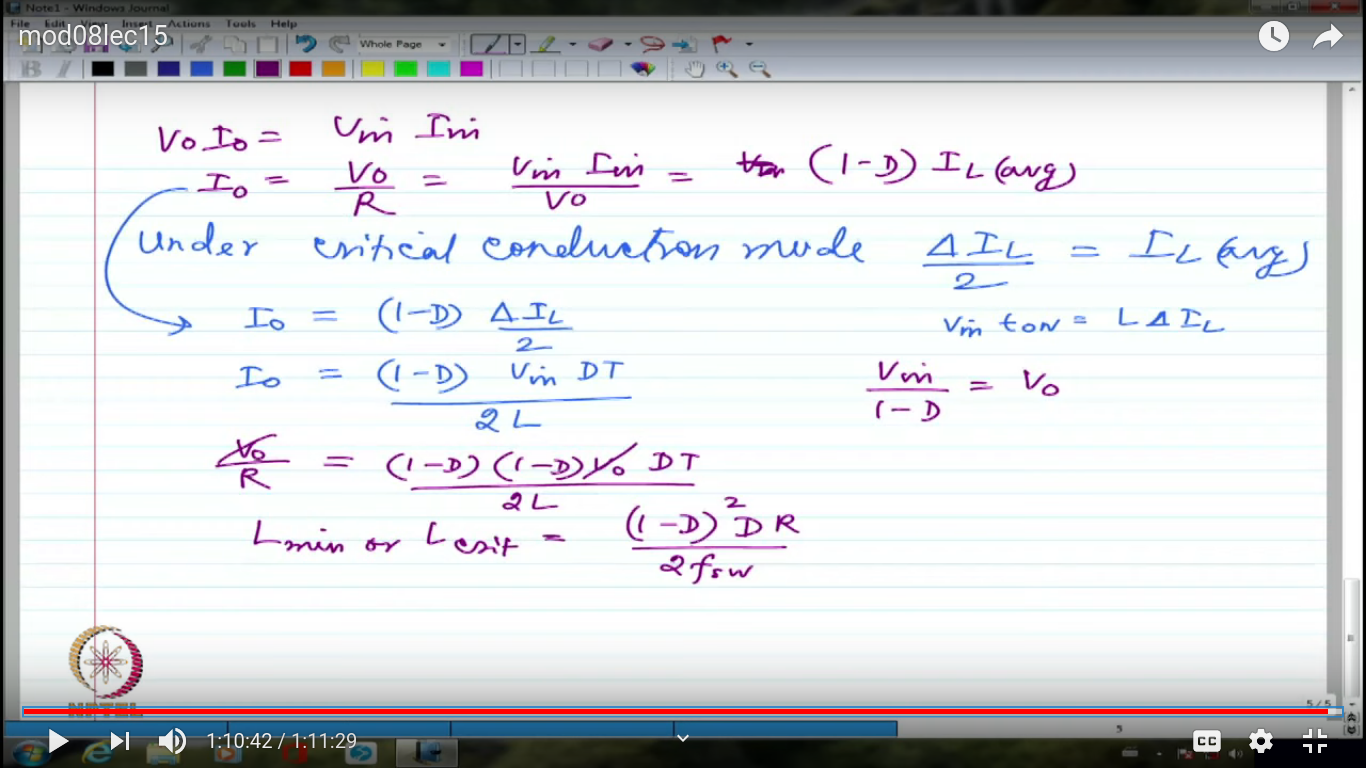 Note1 - Windows Journal
File Edit View Insert Actions Tools Help
mod08lec15
Whole Page
V0 I0 = Vin Iin
I0 = V0/R = Vin Iin/V0 = (1-D) IL (avg)
Under critical conduction mode ΔIL/2 = IL (avg)
I0 = (1-D) ΔIL/2
Vin ton = L ΔIL
I0 = (1-D) Vin DT/2L
Vin/1-D = V0
V0/R = (1-D)(1-D)V0 DT/2L
Lmin or Lcrit = (1-D)² D R/2fsw
NPTEL
5 / 5
5
1:10:42 / 1:11:29
CC